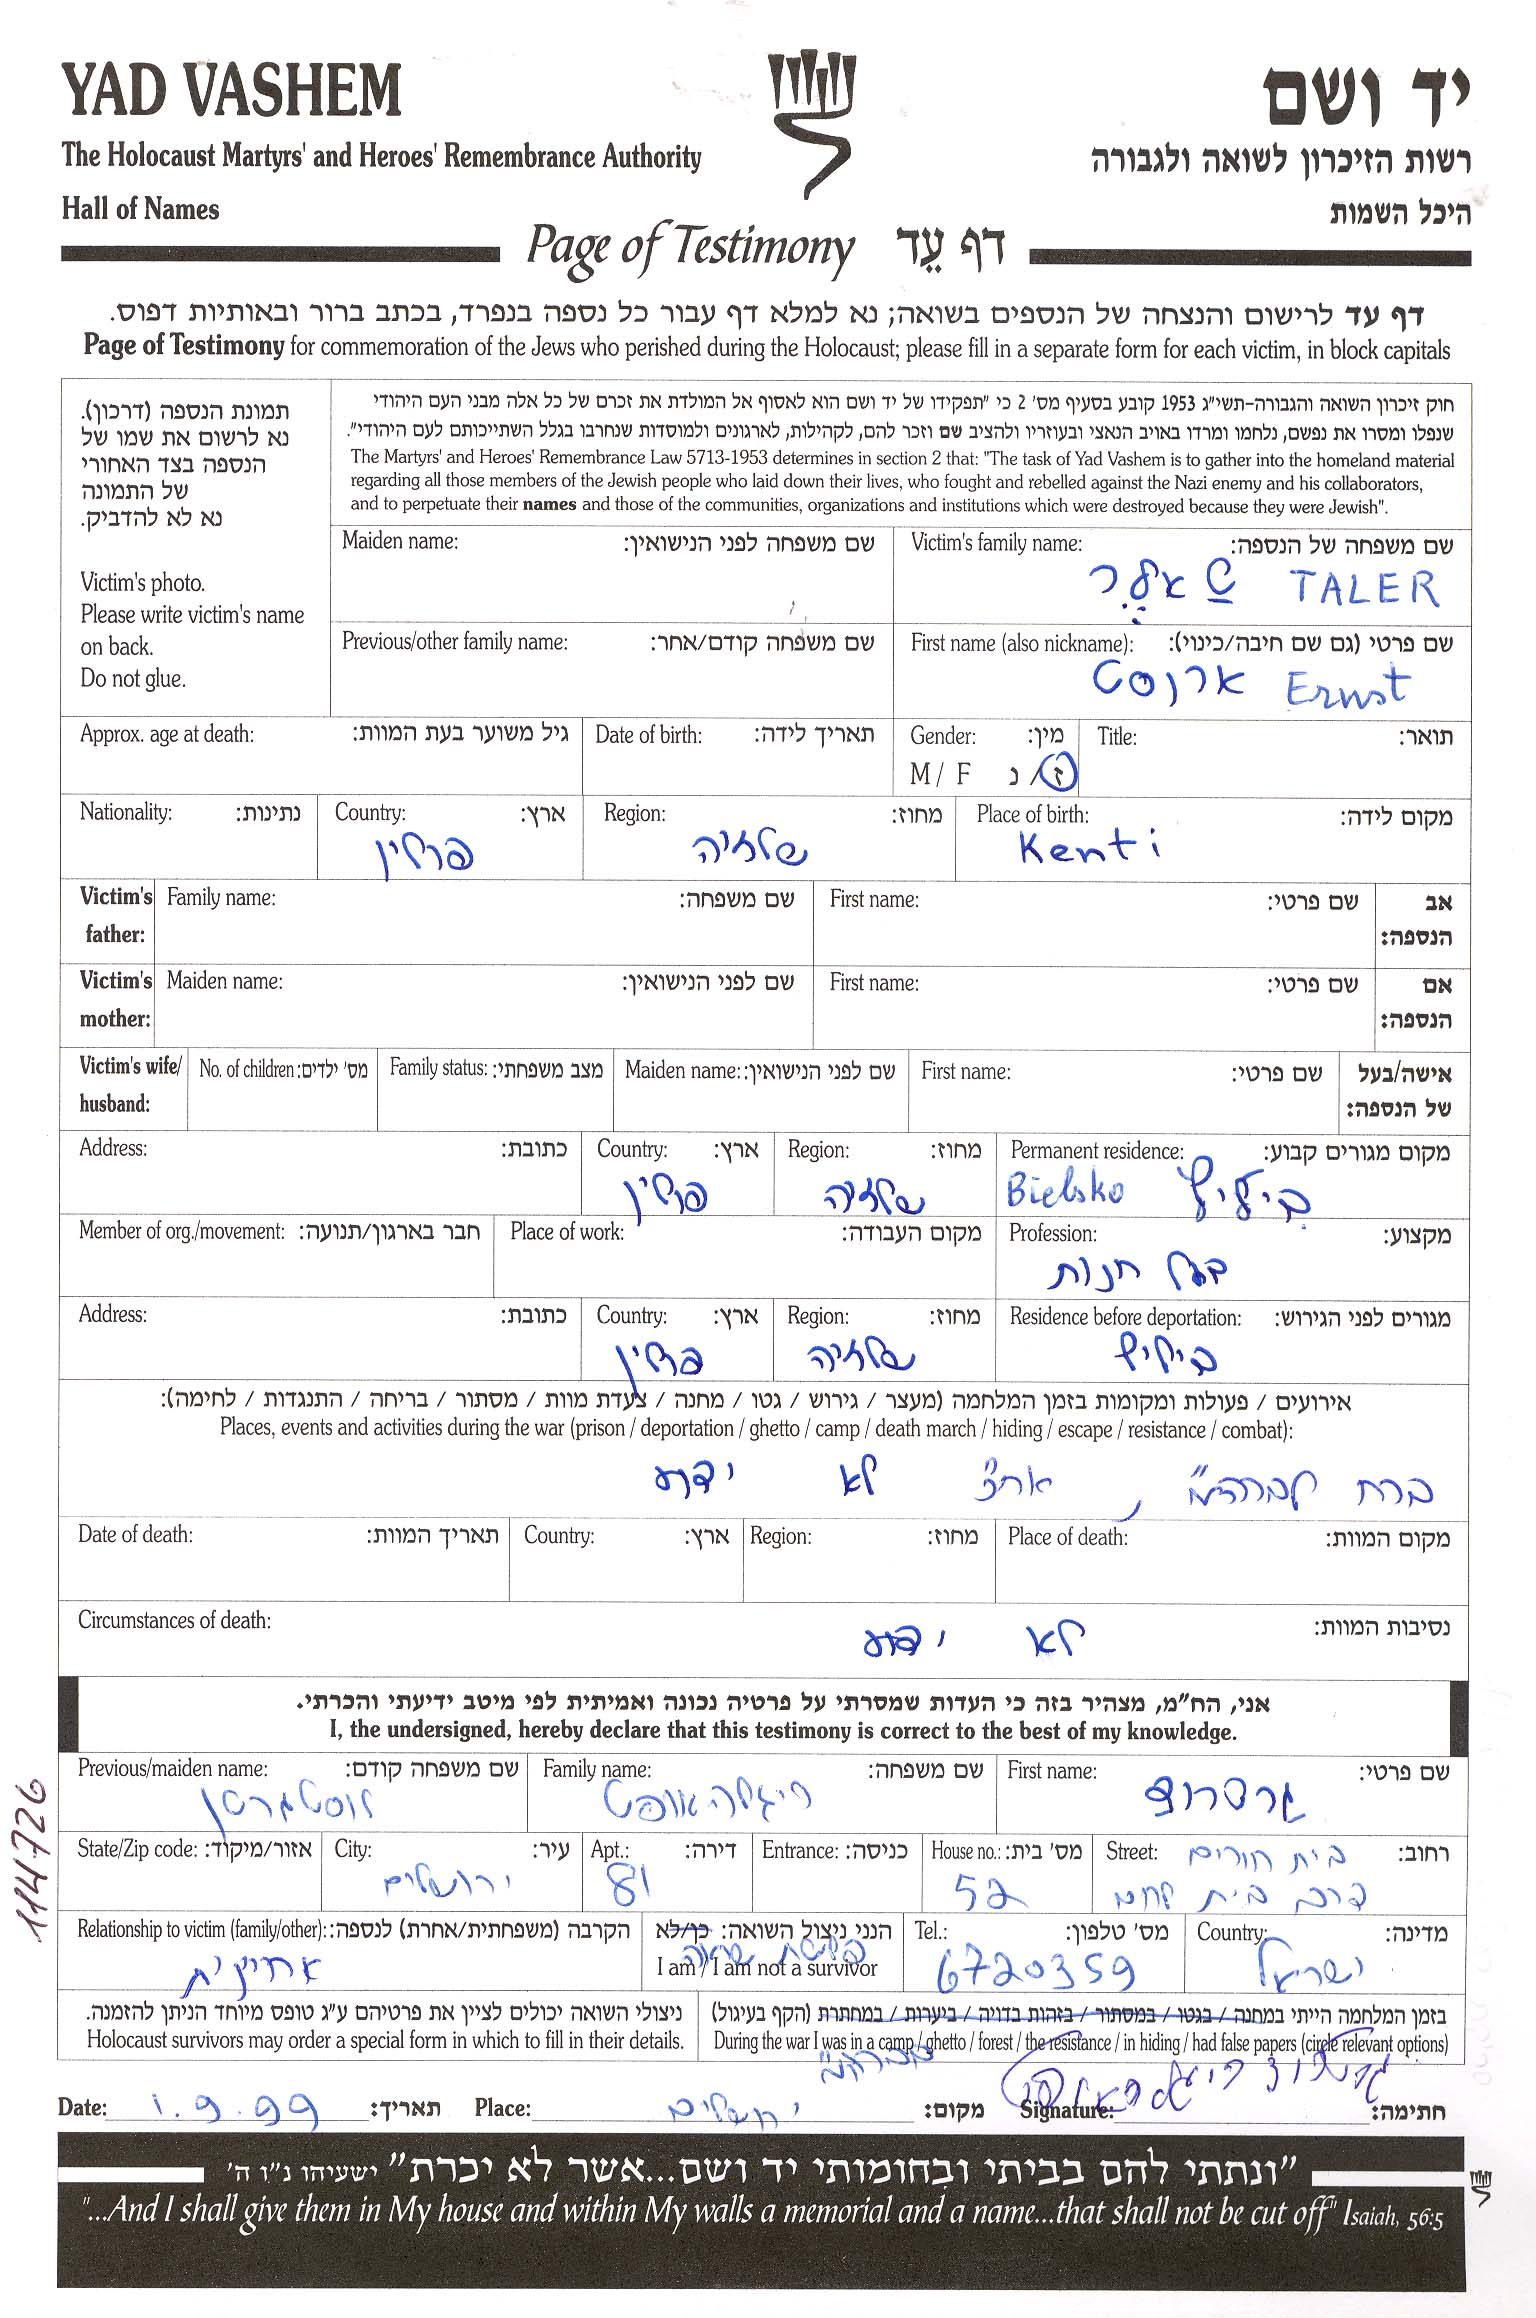 YAD VASHEM
יד ושם
The Holocaust Martyrs' and Heroes' Remembrance Authority
רשות הזיכרון לשואה ולגבורה
Hall of Names
היכל השמות
Page of Testimony דף עֵד
דף עד לרישום והנצחה של הנספים בשואה; נא למלא דף עבור כל נספה בנפרד, בכתב ברור ובאותיות דפוס.
Page of Testimony for commemoration of the Jews who perished during the Holocaust; please fill in a separate form for each victim, in block capitals
תמונת הנספה (דרכון).
נא לרשום את שמו של
הנספה בצד האחורי
של התמונה
נא לא להדביק.
Victim's photo.
Please write victim's name
on back.
Do not glue.
חוק זיכרון השואה והגבורה-תשי"ג 1953 קובע בסעיף מס' 2 כי "תפקידו של יד ושם הוא לאסוף אל המולדת את זכרם של כל אלה מבני העם היהודי
שנפלו ומסרו את נפשם, נלחמו ומרדו באויב הנאצי ובעוזריו ולהציב שם וזכר להם, לקהילות, לארגונים ולמוסדות שנחרבו בגלל השתייכותם לעם היהודי".
The Martyrs' and Heroes' Remembrance Law 5713-1953 determines in section 2 that: "The task of Yad Vashem is to gather into the homeland material
regarding all those members of the Jewish people who laid down their lives, who fought and rebelled against the Nazi enemy and his collaborators,
and to perpetuate their names and those of the communities, organizations and institutions which were destroyed because they were Jewish".
Maiden name: שם משפחה לפני הנישואין:
Victim's family name: שם משפחה של הנספה:
TALER טאלר
Previous/other family name: שם משפחה קודם/אחר:
First name (also nickname): שם פרטי (גם שם חיבה/כינוי):
Ernst ארנסט
Approx. age at death: גיל משוער בעת המוות:
Date of birth: תאריך לידה:
Gender: מין:
M / F ז / נ
Title: תואר:
Nationality: נתינות:
Country: ארץ:
פולין
Region: מחוז:
שלזיה
Place of birth: מקום לידה:
Kenti
Victim's father: Family name: שם משפחה: First name: שם פרטי: אב הנספה:
Victim's mother: Maiden name: שם לפני הנישואין: First name: שם פרטי: אם הנספה:
Victim's wife/ husband: No. of children: מס' ילדים: Family status: מצב משפחתי: Maiden name: שם לפני הנישואין: First name: שם פרטי: אישה/בעל של הנספה:
Address: כתובת: Country: ארץ: Region: מחוז: Permanent residence: מקום מגורים קבוע:
פולין שלזיה Bielsko ביליץ
Member of org./movement: חבר בארגון/תנועה: Place of work: מקום העבודה: Profession: מקצוע:
בעל חנות
Address: כתובת: Country: ארץ: Region: מחוז: Residence before deportation: מגורים לפני הגירוש:
פולין שלזיה ביליץ
אירועים / פעולות ומקומות בזמן המלחמה (מעצר / גירוש / גטו / מחנה / צעדת מוות / מסתור / בריחה / התנגדות / לחימה):
Places, events and activities during the war (prison / deportation / ghetto / camp / death march / hiding / escape / resistance / combat):
ברח לברה"מ, אח"צ לא ידוע
Date of death: תאריך המוות: Country: ארץ: Region: מחוז: Place of death: מקום המוות:
Circumstances of death: נסיבות המוות:
לא ידוע
אני, הח"מ, מצהיר בזה כי העדות שמסרתי על פרטיה נכונה ואמיתית לפי מיטב ידיעתי והכרתי.
I, the undersigned, hereby declare that this testimony is correct to the best of my knowledge.
Previous/maiden name: שם משפחה קודם: Family name: שם משפחה: First name: שם פרטי:
לוסטגרטן ריגלהאופט גרטרוד
State/Zip code: אזור/מיקוד: City: עיר: Apt.: דירה: Entrance: כניסה: House no.: מס' בית: Street: רחוב:
ירושלים 81 52 בית חורים
דרך בית לחם
Relationship to victim (family/other): הקרבה (משפחתית/אחרת) לנספה:
אחינית
הנני ניצול השואה: כן/לא
I am / I am not a survivor
Tel.: מס' טלפון:
6720359
Country: מדינה:
ישראל
ניצולי השואה יכולים לציין את פרטיהם ע"ג טופס מיוחד הניתן להזמנה.
Holocaust survivors may order a special form in which to fill in their details.
בזמן המלחמה הייתי במחנה / בגטו / במסתור / בזהות בדויה / ביערות / במחתרת (הקף בעיגול)
During the war I was in a camp / ghetto / forest / the resistance / in hiding / had false papers (circle relevant options)
בברה"מ
Date: 1.9.99 תאריך: Place: ירושלים מקום: Signature: חתימה:
"ונתתי להם בביתי ובחומותי יד ושם...אשר לא יכרת" ישעיהו נ"ו ה'
"...And I shall give them in My house and within My walls a memorial and a name...that shall not be cut off" Isaiah, 56:5
114726